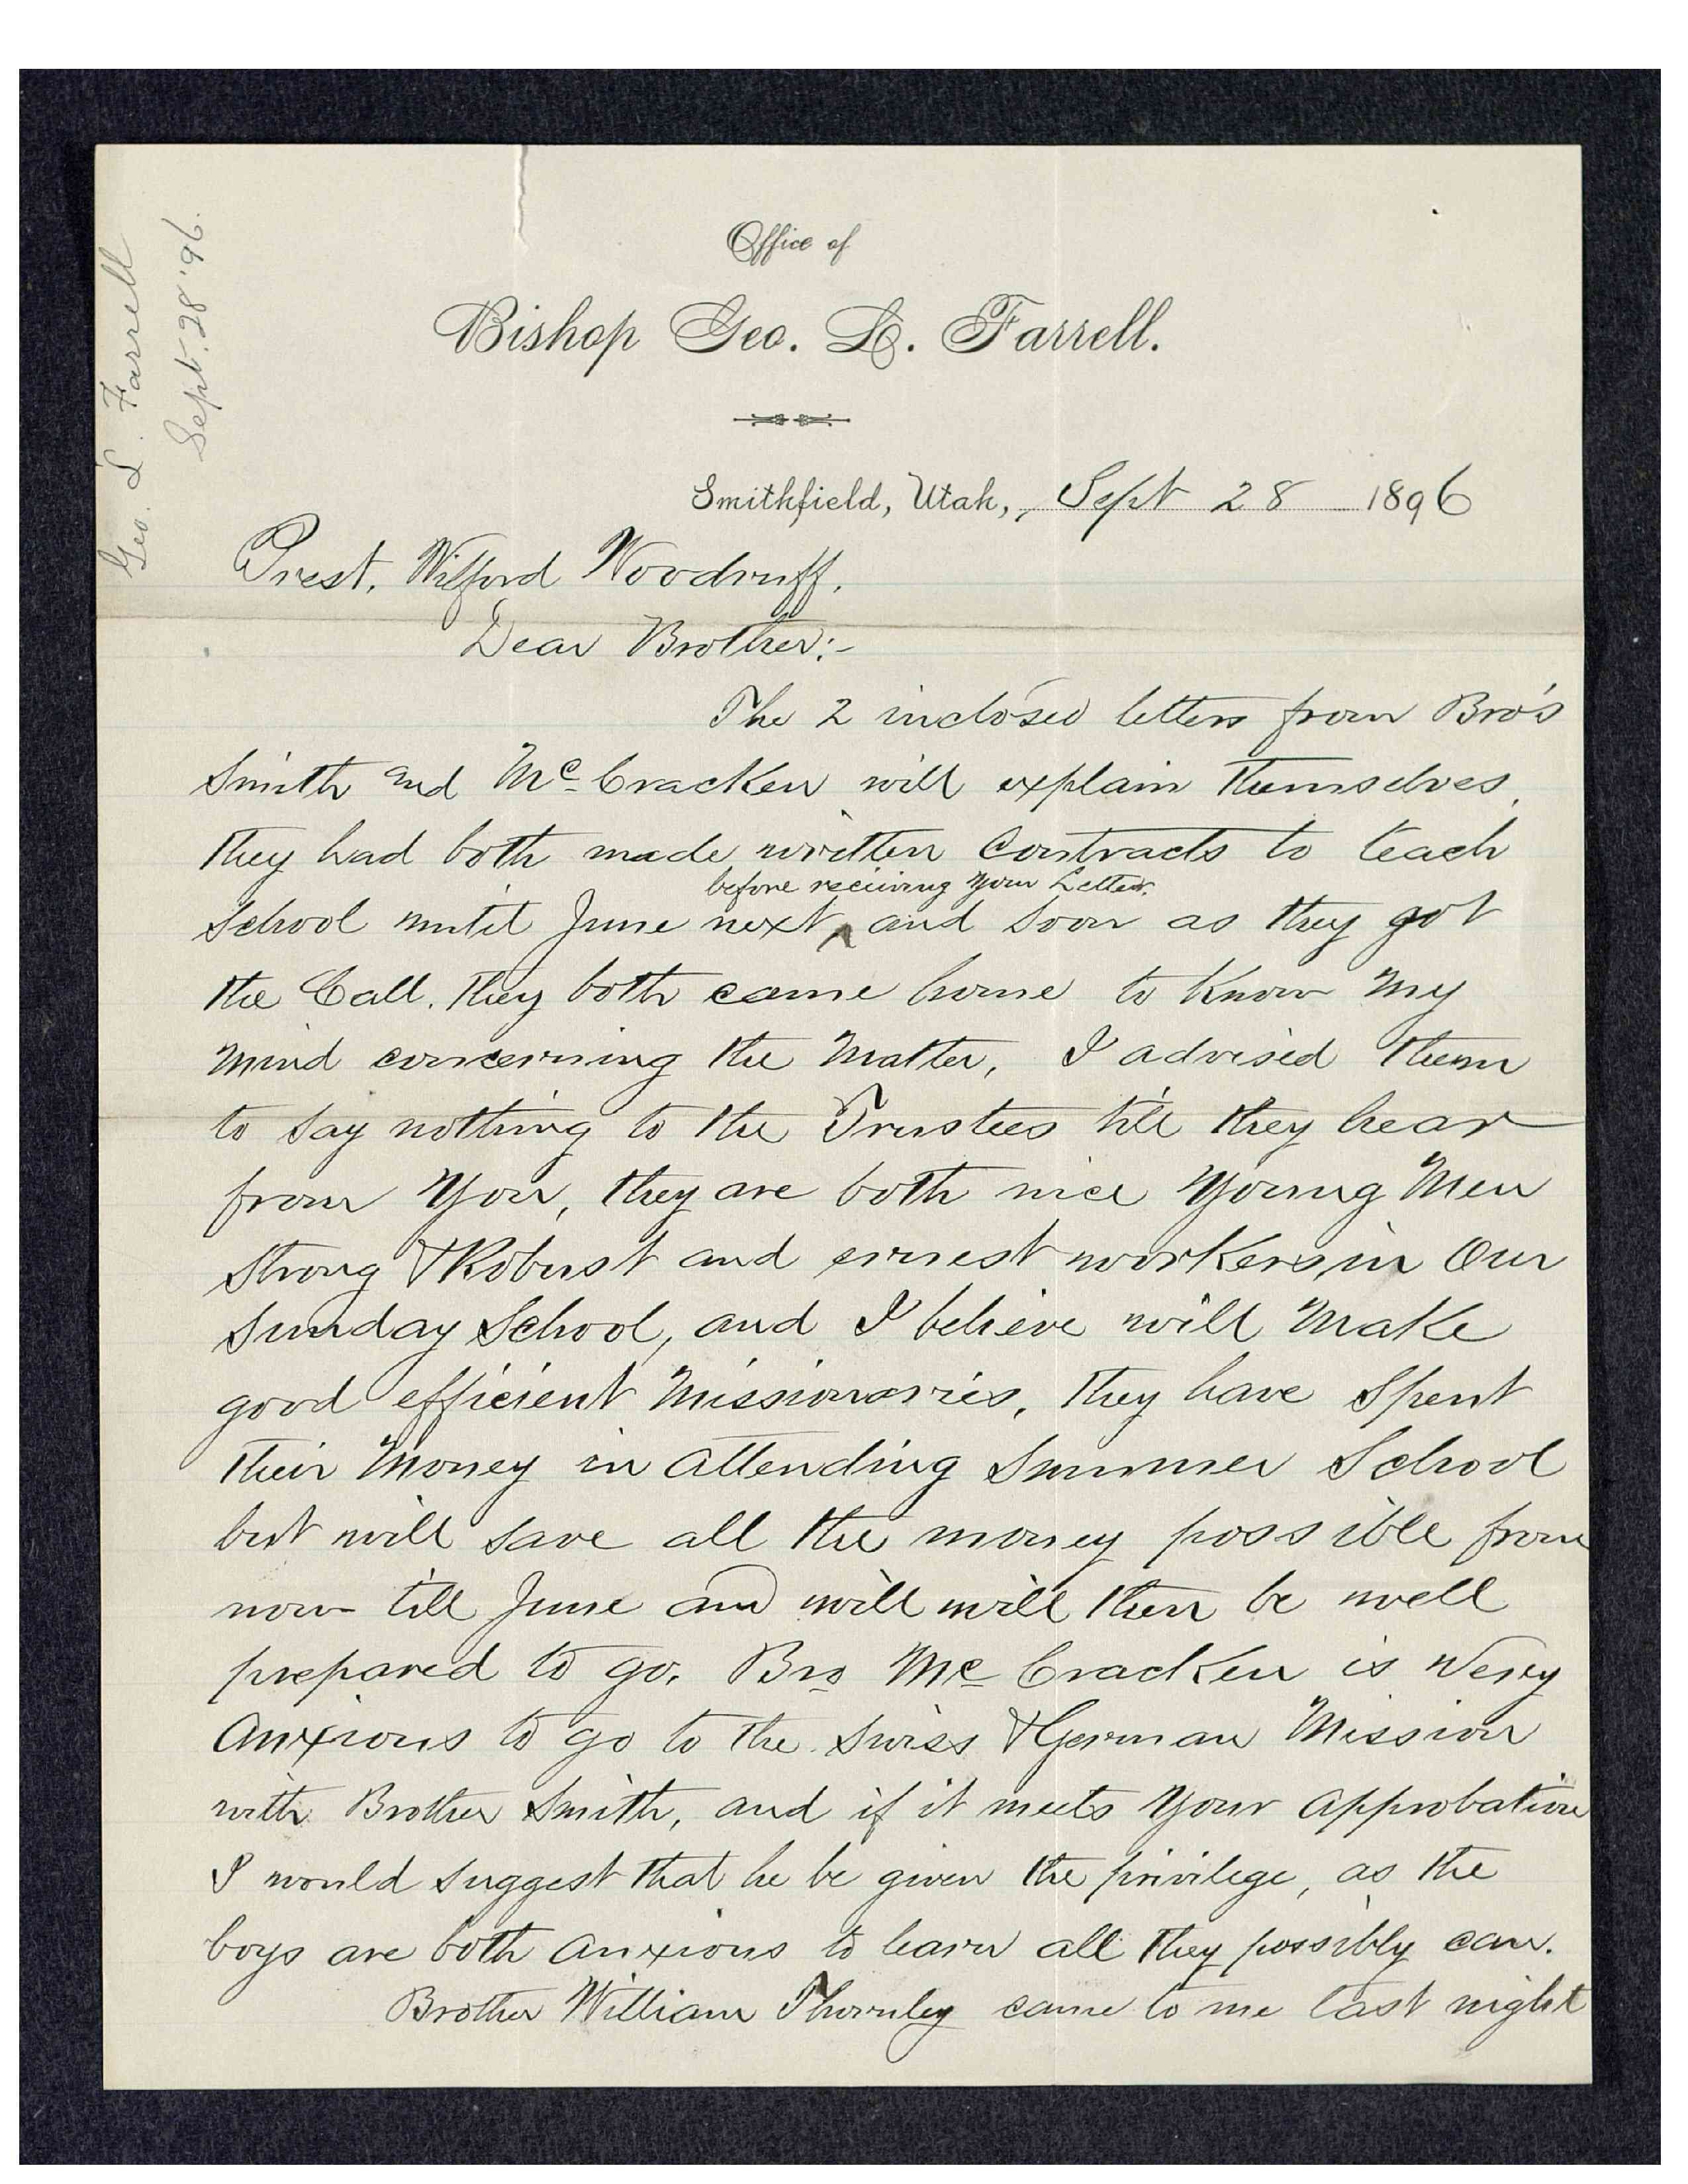 Geo. L. Farrell
Sept. 28 '96.
Office of
Bishop Geo. L. Farrell.
Smithfield, Utah, Sept 28 1896
Prest. Wilford Woodruff.
Dear Brother:-
The 2 inclosed letters from Bro's
Smith and Mc Cracken will explain themselves.
They had both made written Contracts to teach
before receiving your Letter.
School until June next ^ and soon as they got
the Call. They both came home to know my
mind concerning the Matter, I advised them
to say nothing to the Trustees till they hear
from You, they are both nice Young Men
strong & Robust and ernest workers in Our
Sunday School, and I believe will Make
good efficient Missionaries, They have Spent
their Money in Attending Summer School
but will save all the money possible from
now till June and will will then be well
prepared to go. Bro Mc Cracken is Very
Anxious to go to the Swiss & German Mission
with Brother Smith, and if it meets Your Approbation
I would suggest that he be given the privilege, as the
boys are both Anxious to learn all They possibly can.
Brother William Thornley came to me last night